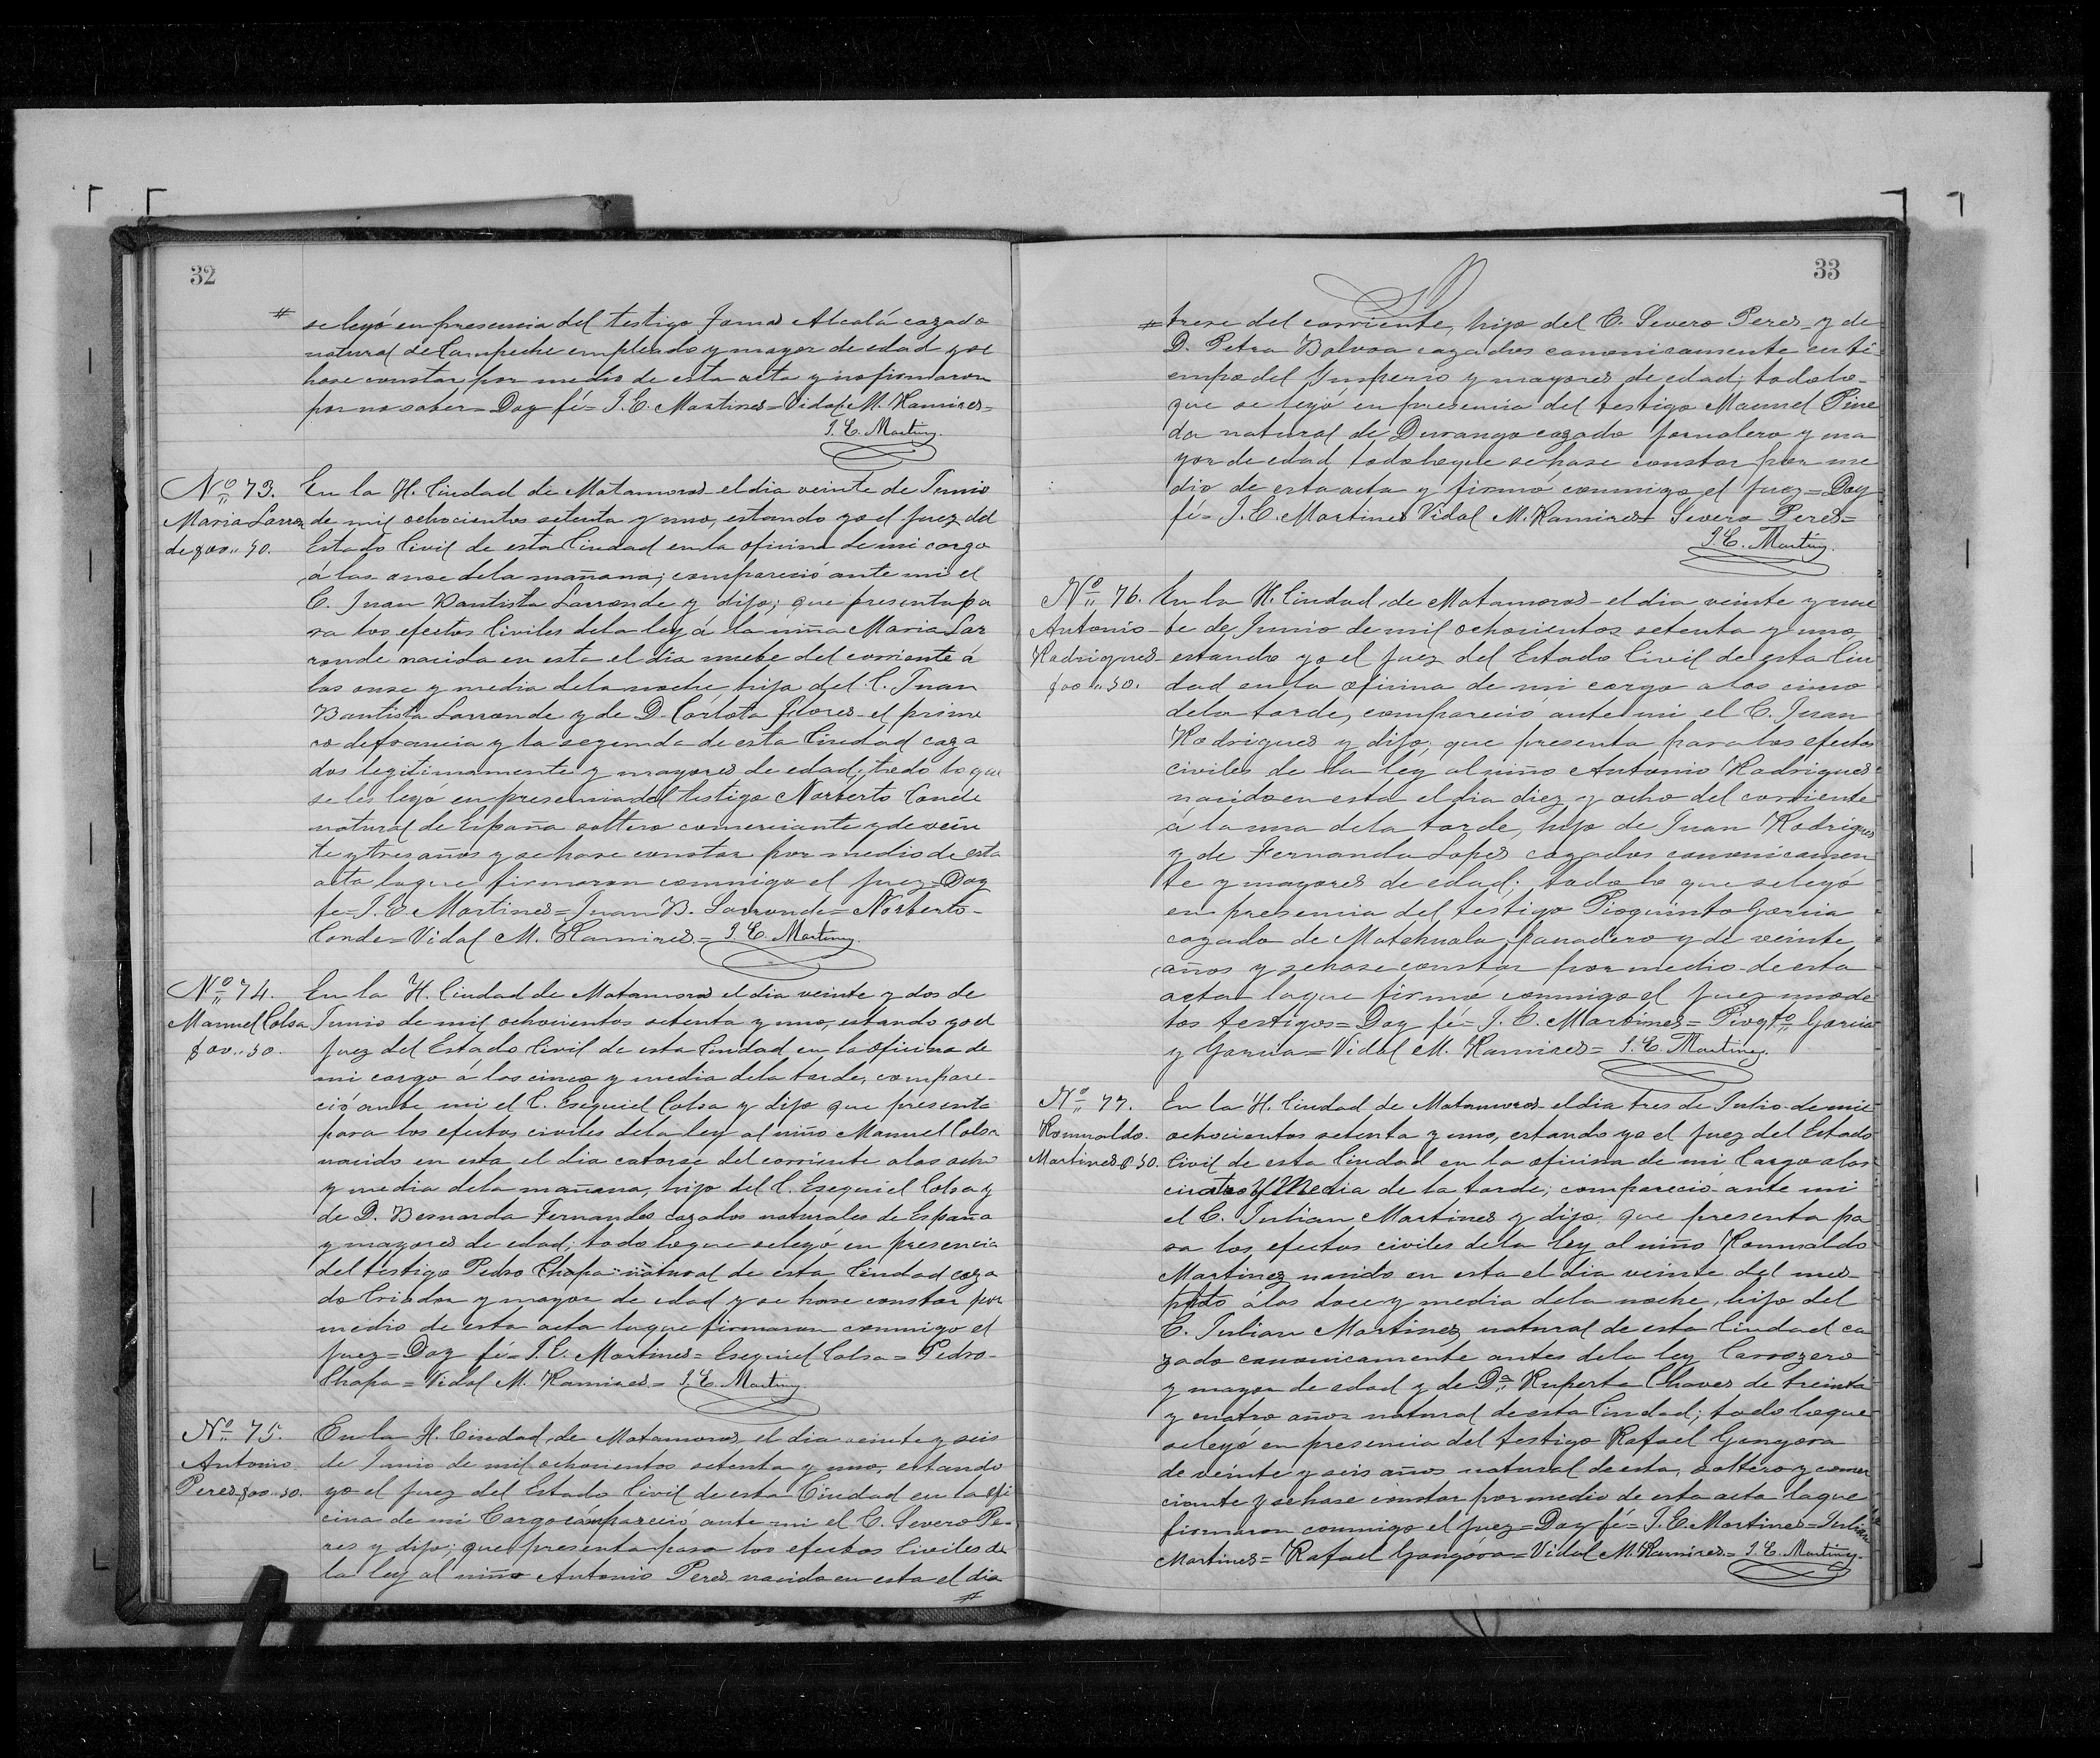 32
# se leyó en presencia del testigo Tomas Alcalá cazado
natural de Campeche empleado y mayor de edad y se
hase constar por medio de esta acta y no firmaron
por no saber = Doy fé = J. E. Martines = Vidal M. Ramires =
J. E. Martinz.
Nº 73. En la H. Ciudad de Matamoros el dia veinte de Junio
Maria Larron de mil ochocientos setenta y uno, estando yo el juez del
de $00,, 50. Estado Civil de esta Ciudad en la oficina de mi cargo
á las onse dela mañana; compareció ante mi el
C. Juan Bautista Larronde y dijo; que presenta pa
ra los efectos Civiles dela ley á la niña Maria Lar
ronde nacida en esta el dia nuebe del corriente á
las onse y media dela noche, hija del C. Juan
Bautista Larronde y de D. Carlota Flores el prime
ro de francia y la segunda de esta Ciudad caza
dos legitimamente y mayores de edad; todo lo que
se les leyó en presencia del testigo Norberto Conde
natural de España soltero comerciante y de vein
te y tres años y se hase constar por medio de esta
acta la que firmaron conmigo el juez = Doy
fe = J. E. Martines = Juan B. Larronde = Norberto
Conde = Vidal M. Ramires = J. E. Martinz.
Nº 74. En la H. Ciudad de Matamoros el dia veinte y dos de
Manuel Colsa Junio de mil ochocientos setenta y uno, estando yo el
$00,, 50. juez del Estado Civil de esta Ciudad en la oficina de
mi cargo á las cinco y media dela tarde, compare-
ció ante mi el C. Esequiel Colsa y dijo que presenta
para los efectos civiles dela ley al niño Manuel Colsa
nacido en esta el dia catorse del corriente a las ocho
y media dela mañana, hijo del C. Esequiel Colsa y
de D. Bernarda Fernandes cazados naturales de España
y mayores de edad; todo loque se leyó en presencia
del testigo Pedro Chapa natural de esta Ciudad caza
do Criador y mayor de edad y se hase constar por
medio de esta acta la que firmaron conmigo el
juez = Doy fé = J. E. Martines = Esequiel Colsa = Pedro
Chapa = Vidal M. Ramires = J. E. Martinz.
Nº 75. En la H. Ciudad de Matamoros el dia veinte y seis
Antonio de Junio de mil ochocientos setenta y uno, estando
Peres $00,, 50. yo el juez del Estado Civil de esta Ciudad en la ofi
cina de mi Cargo compareció ante mi el C. Severo Pe-
res y dijo; que presenta para los efectos Civiles de
la ley al niño Antonio Peres nacido en esta el dia
#
33
# trese del corriente, hijo del C. Severo Peres y de
D. Petra Balvoa cazados canonicamente en ti
empo del Ymperio y mayores de edad; todo lo
que se leyó en presencia del testigo Manuel Pine
da natural de Durango cazado jornalero y ma
yor de edad todo loque se hase constar por me
dio de esta acta y firmó conmigo el juez = Doy
fé = J. E. Martines Vidal M. Ramires = Severo Peres =
J. E. Martinz.
Nº 76. En la H. Ciudad de Matamoros el dia veinte y nue
Antonio be de Junio de mil ochocientos setenta y uno
Rodrigues estando yo el juez del Estado Civil de esta Ciu
$00,, 50. dad en la oficina de mi cargo a las cinco
dela tarde, compareció ante mi el C. Juan
Rodrigues y dijo; que presenta para los efectos
civiles de la ley al niño Antonio Rodrigues
nacido en esta el dia diez y ocho del corriente
á la una dela tarde, hijo de Juan Rodrigues
y de Fernanda Lopes cazados canonicamen
te y mayores de edad; todo lo que se leyó
en presencia del testigo Pioquinto Garcia
cazado de Matehuala, panadero y de veinte
años y se hase constar por medio de esta
acta laque firmó conmigo el juez uno de
los testigos = Doy fé = J. E. Martines = Pioqto Garcia
y Garcia = Vidal M. Ramires = J. E. Martinz.
Nº 77. En la H. Ciudad de Matamoros el dia tres de Julio de mil
Romualdo ochocientos setenta y uno, estando yo el juez del Estado
Martines $ 50. Civil de esta Ciudad en la oficina de mi Cargo a las
cuatro y Media de la tarde; comparecio ante mi
el C. Julian Martines y dijo, que presenta pa
ra los efectos civiles dela ley al niño Romualdo
Martinez nacido en esta el dia veinte del mes
pdo á las doce y media dela noche, hijo del
C. Julian Martines natural de esta Ciudad ca
zado canonicamente antes dela ley Carrozero
y mayor de edad y de Da Ruperta Chaves de treinta
y cuatro años natural de esta Ciudad; todo loque
se leyó en presencia del testigo Rafael Gongora
de veinte y seis años natural de esta, soltero y comer
ciante y se hase constar por medio de esta acta la que
firmaron conmigo el juez = Doy fé = J. E. Martines = Julian
Martines = Rafael Gongora = Vidal M. Ramires = J. E. Martinz.